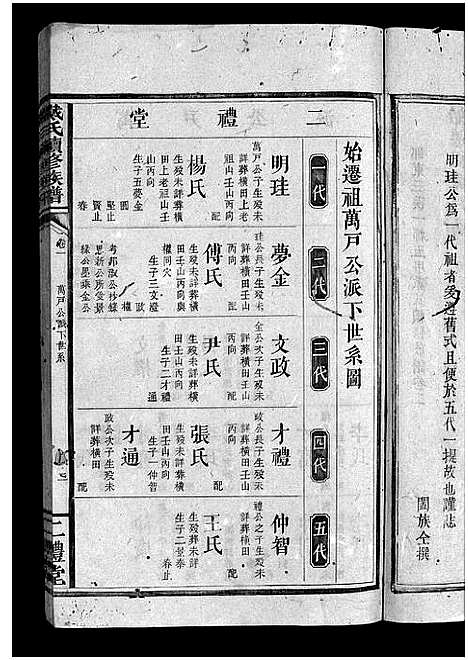 明珪公爲一代祖者爰遵舊式且便於五代一提故也謹志
闔族全撰
二禮堂
始遷祖萬戶公派下世系圖
一代
二代
三代
四代
五代
明珪
萬戶公子生殁未
詳葬橫田上老
祖山壬山丙向
配
楊氏
生殁未詳葬橫
田上老祖山壬
山丙向
生子五夢金
圓
堅止
賢止
春
夢金
珪公長子生殁未
詳葬橫田壬山
丙向
配
傅氏
生殁未詳葬橫
田壬山丙向與
權同穴
生子三文澄
歐
權
文政
金公次子生殁未
詳葬橫田壬山
丙向
配
尹氏
生殁未詳葬橫
田壬山丙向
生子二才禮
通
才禮
政公長子生殁未
詳葬橫田壬山
丙向
配
張氏
生殁未詳葬橫
田壬山丙向
生子一仲智
才通
政公次子生殁未
詳葬橫田
配
仲智
禮公之子生殁未
詳葬橫田
配
王氏
生殁葬未詳
生子二景泰
春止
戴氏續修族譜
卷一
萬戶公派下世系
二禮堂